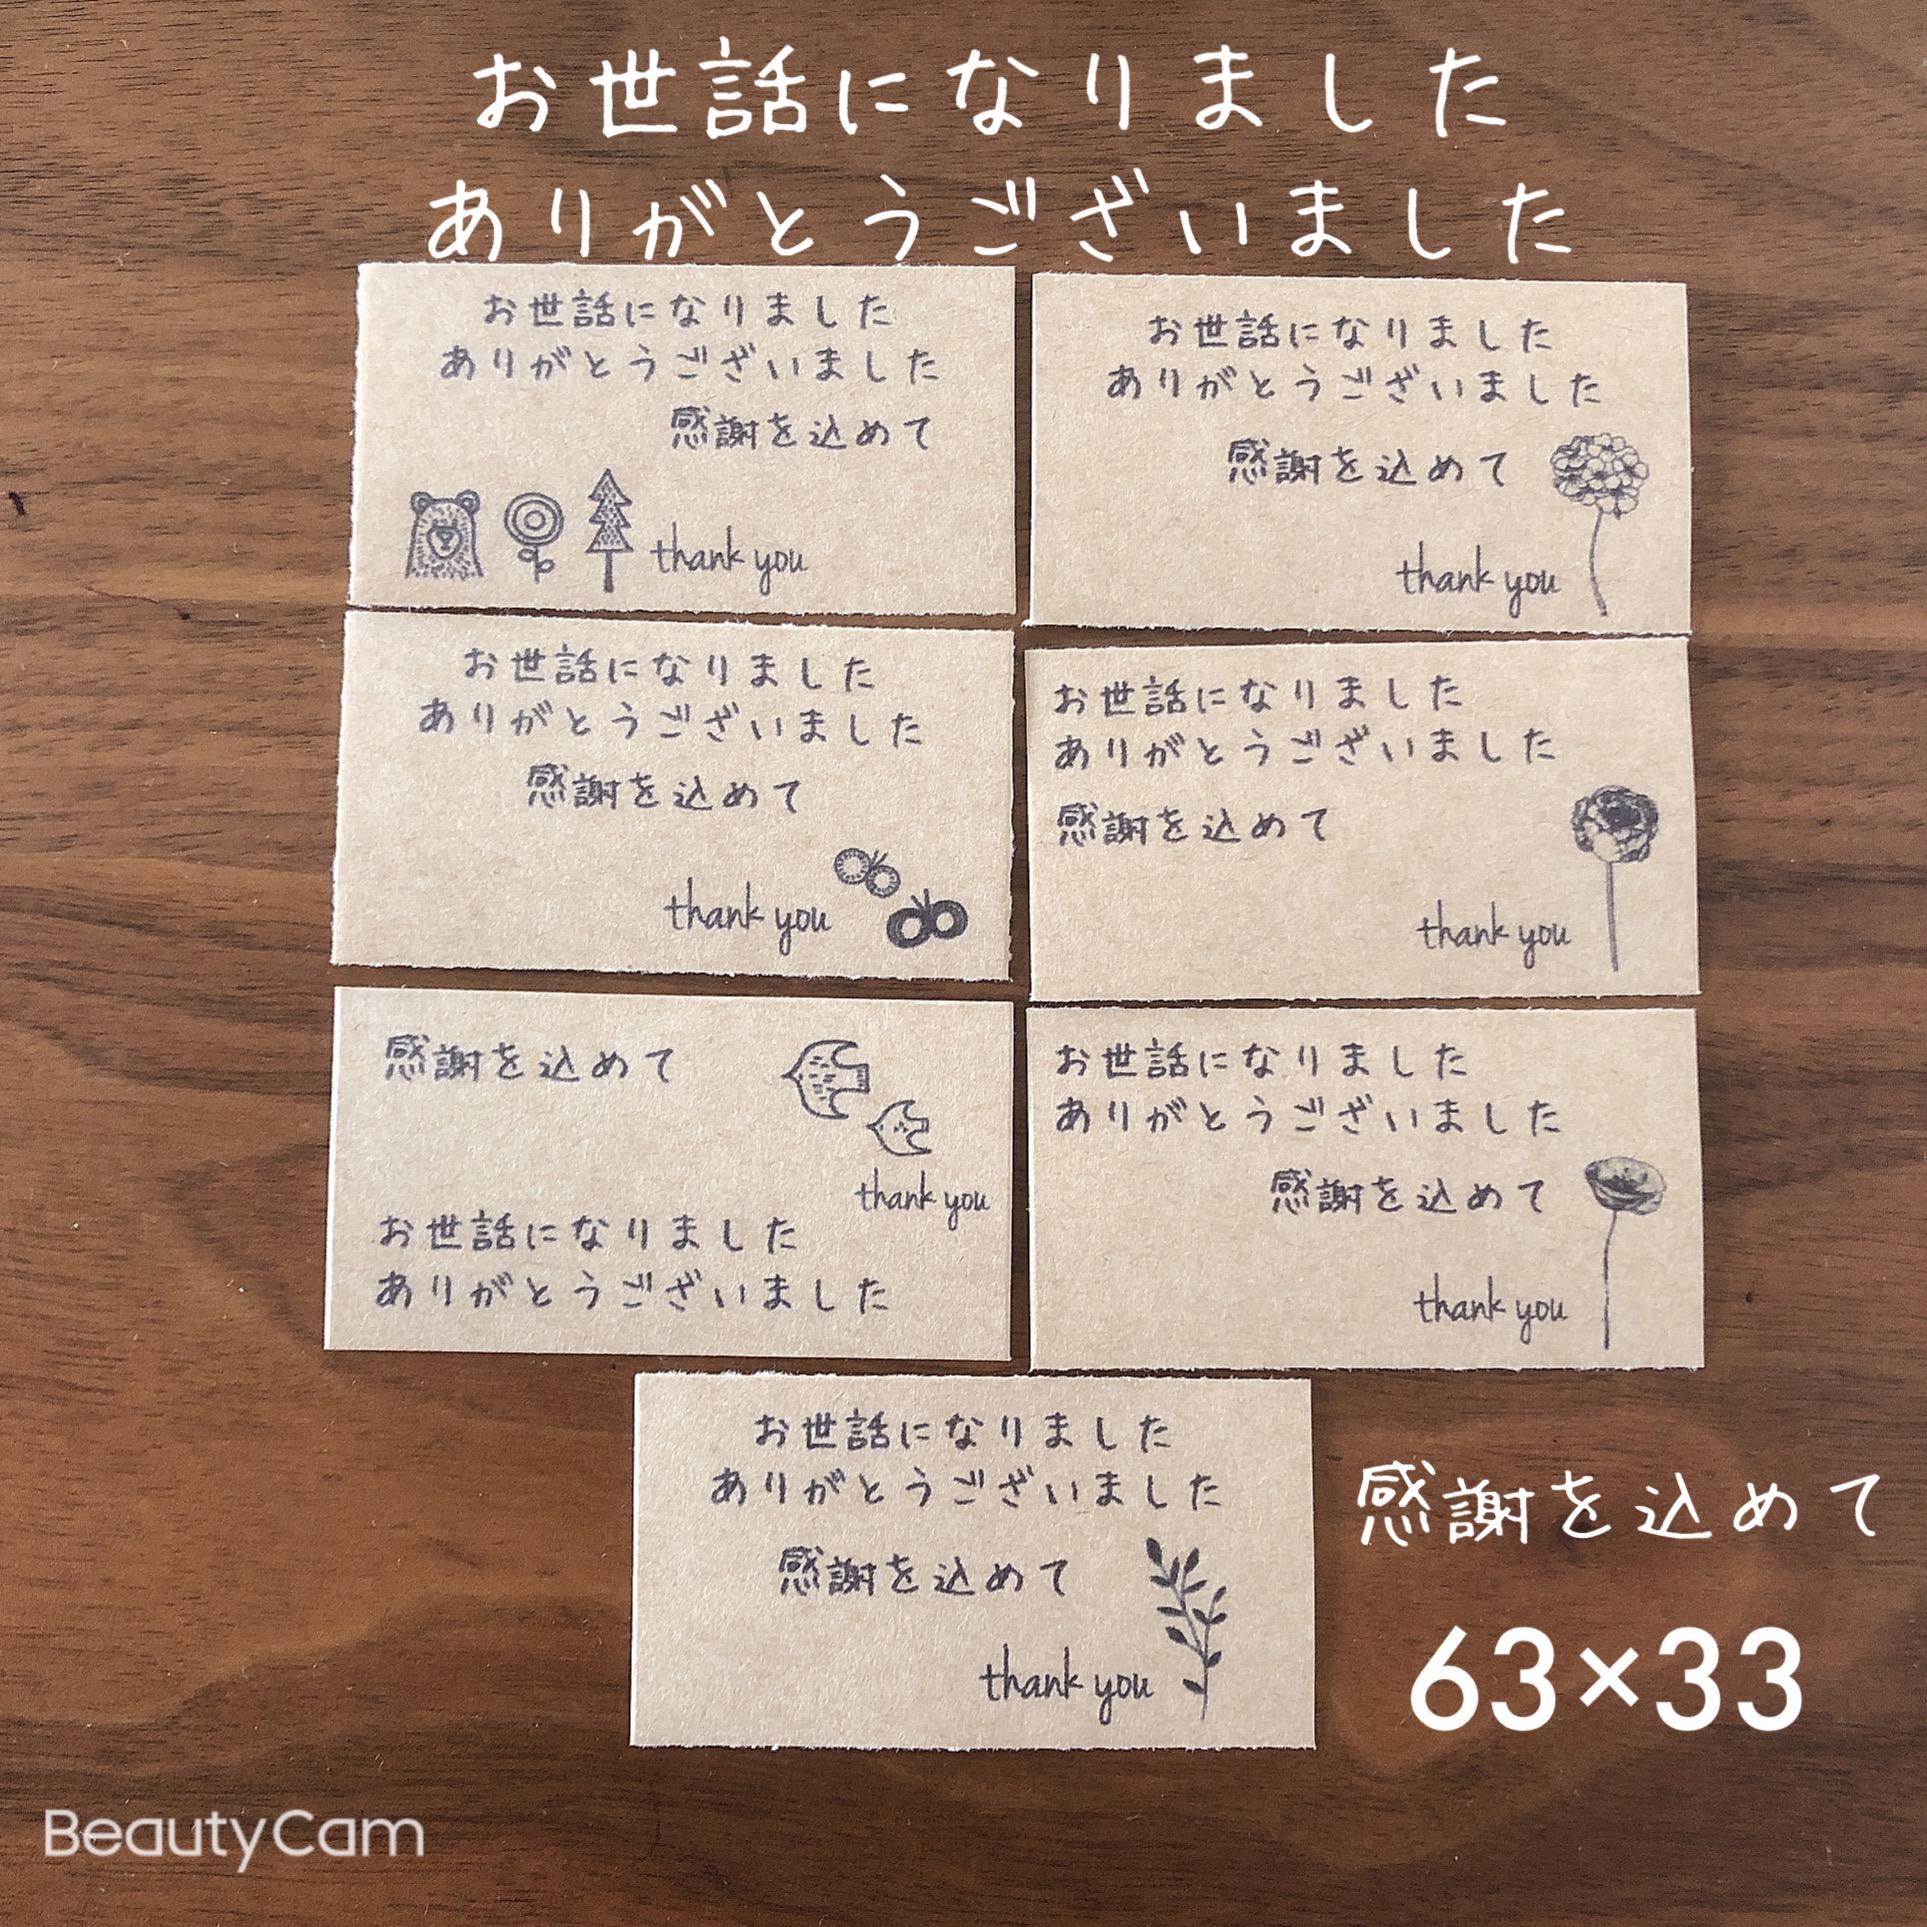 お世話になりました
ありがとうございました
お世話になりました
ありがとうございました
感謝を込めて
thank you
お世話になりました
ありがとうございました
感謝を込めて
thank you
お世話になりました
ありがとうございました
感謝を込めて
thank you
お世話になりました
ありがとうございました
感謝を込めて
thank you
感謝を込めて
thank you
お世話になりました
ありがとうございました
お世話になりました
ありがとうございました
感謝を込めて
thank you
お世話になりました
ありがとうございました
感謝を込めて
thank you
感謝を込めて
63×33
BeautyCam